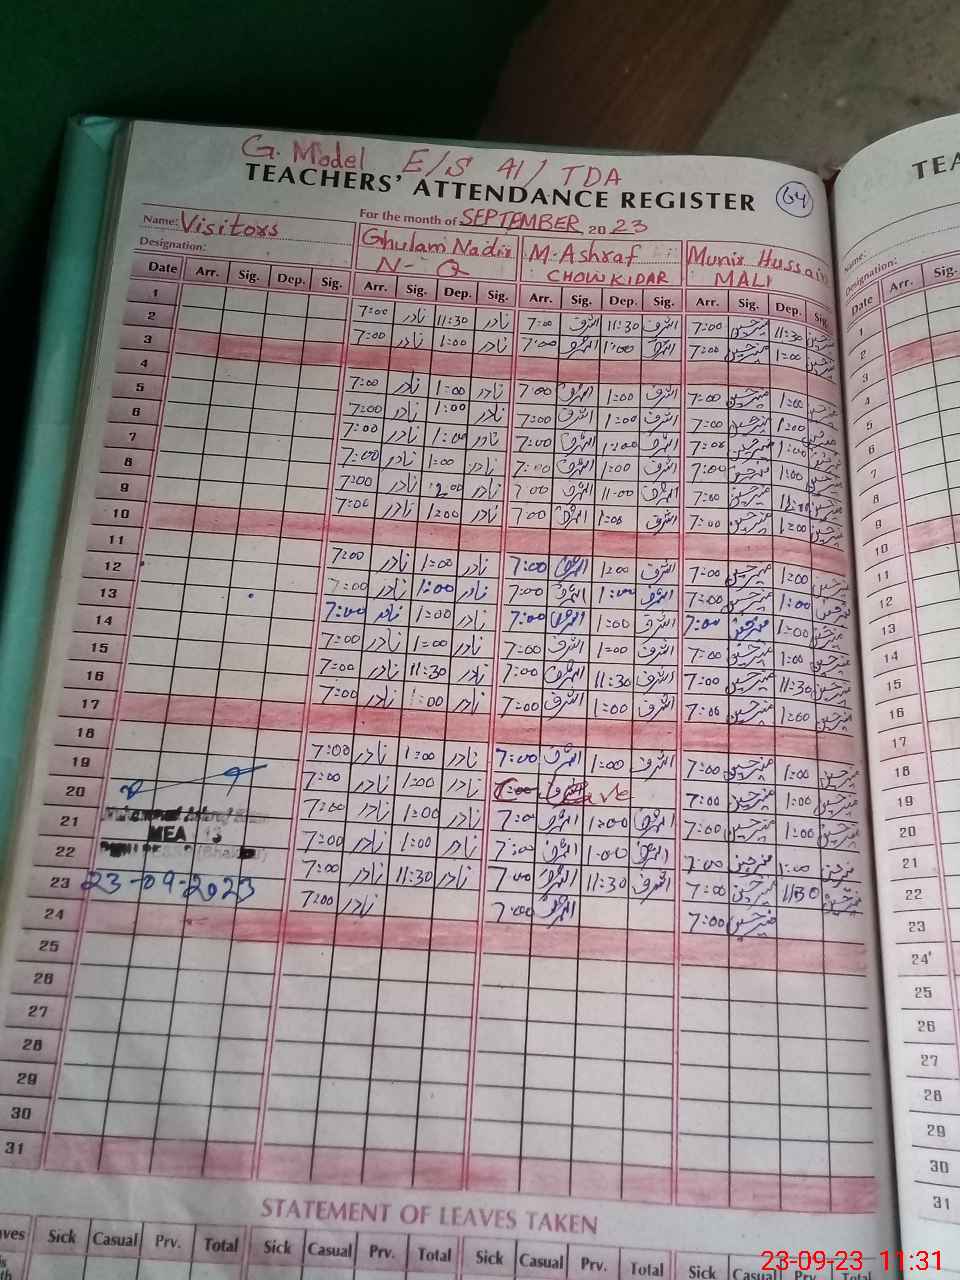 G. Model E/S 41/TDA
TEACHERS' ATTENDANCE REGISTER 64
Name: Visitors For the month of SEPTEMBER 2023
Designation:
Ghulam Nadir M. Ashraf Munir Hussain
N-Q CHOWKIDAR MALI
Date Arr. Sig. Dep. Sig. Arr. Sig. Dep. Sig. Arr. Sig. Dep. Sig. Arr. Sig. Dep. Sig.
1 7:00 نادر 11:30 نادر 7:00 اشرف 11:30 اشرف 7:00 منیر حسین 11:30 منیر حسین
2 7:00 نادر 1:00 نادر 7:00 اشرف 1:00 اشرف 7:00 منیر حسین 1:00 منیر حسین
3
4 7:00 نادر 1:00 نادر 7:00 اشرف 1:00 اشرف 7:00 منیر حسین 1:00 منیر حسین
5 7:00 نادر 1:00 نادر 7:00 اشرف 1:00 اشرف 7:00 منیر حسین 1:00 منیر حسین
6 7:00 نادر 1:00 نادر 7:00 اشرف 1:00 اشرف 7:00 منیر حسین 1:00 منیر حسین
7 7:00 نادر 1:00 نادر 7:00 اشرف 1:00 اشرف 7:00 منیر حسین 1:00 منیر حسین
8 7:00 نادر نادر 7:00 اشرف 11:00 اشرف 7:00 منیر حسین منیر حسین
9 7:00 نادر 1:00 نادر 7:00 اشرف 1:00 اشرف 7:00 منیر حسین 1:00 منیر حسین
10
11 7:00 نادر 1:00 نادر 7:00 اشرف 1:00 اشرف 7:00 منیر حسین 1:00 منیر حسین
12 7:00 نادر 1:00 نادر 7:00 اشرف 1:00 اشرف 7:00 منیر حسین 1:00 منیر حسین
13 7:00 نادر 1:00 نادر 7:00 اشرف 1:00 اشرف 7:00 منیر حسین 1:00 منیر حسین
14 7:00 نادر 1:00 نادر 7:00 اشرف 1:00 اشرف 7:00 منیر حسین 1:00 منیر حسین
15 7:00 نادر 11:30 نادر 7:00 اشرف 11:30 اشرف 7:00 منیر حسین 11:30 منیر حسین
16 7:00 نادر 1:00 نادر 7:00 اشرف 1:00 اشرف 7:00 منیر حسین 1:00 منیر حسین
17
18 7:00 نادر 1:00 نادر 7:00 اشرف 1:00 اشرف 7:00 منیر حسین 1:00 منیر حسین
19 7:00 نادر 1:00 نادر Leave 7:00 منیر حسین 1:00 منیر حسین
20 7:00 نادر 1:00 نادر 7:00 اشرف 1:00 اشرف 7:00 منیر حسین 1:00 منیر حسین
21 MEA 7:00 نادر 1:00 نادر 7:00 اشرف 1:00 اشرف 7:00 منیر حسین 1:00 منیر حسین
22 7:00 نادر 11:30 نادر 7:00 اشرف 11:30 اشرف 7:00 منیر حسین 11:30 منیر حسین
23 23-09-2023 7:00 نادر 7:00 اشرف 7:00 منیر حسین
24
25
26
27
28
29
30
31
STATEMENT OF LEAVES TAKEN
Sick Casual Prv. Total Sick Casual Prv. Total Sick Casual Prv. Total Sick Casual Prv. Total
TEA
Name:
Designation:
Date Arr. Sig.
1
2
3
4
5
6
7
8
9
10
11
12
13
14
15
16
17
18
19
20
21
22
23
24
25
26
27
28
29
30
31
23-09-23 11:31